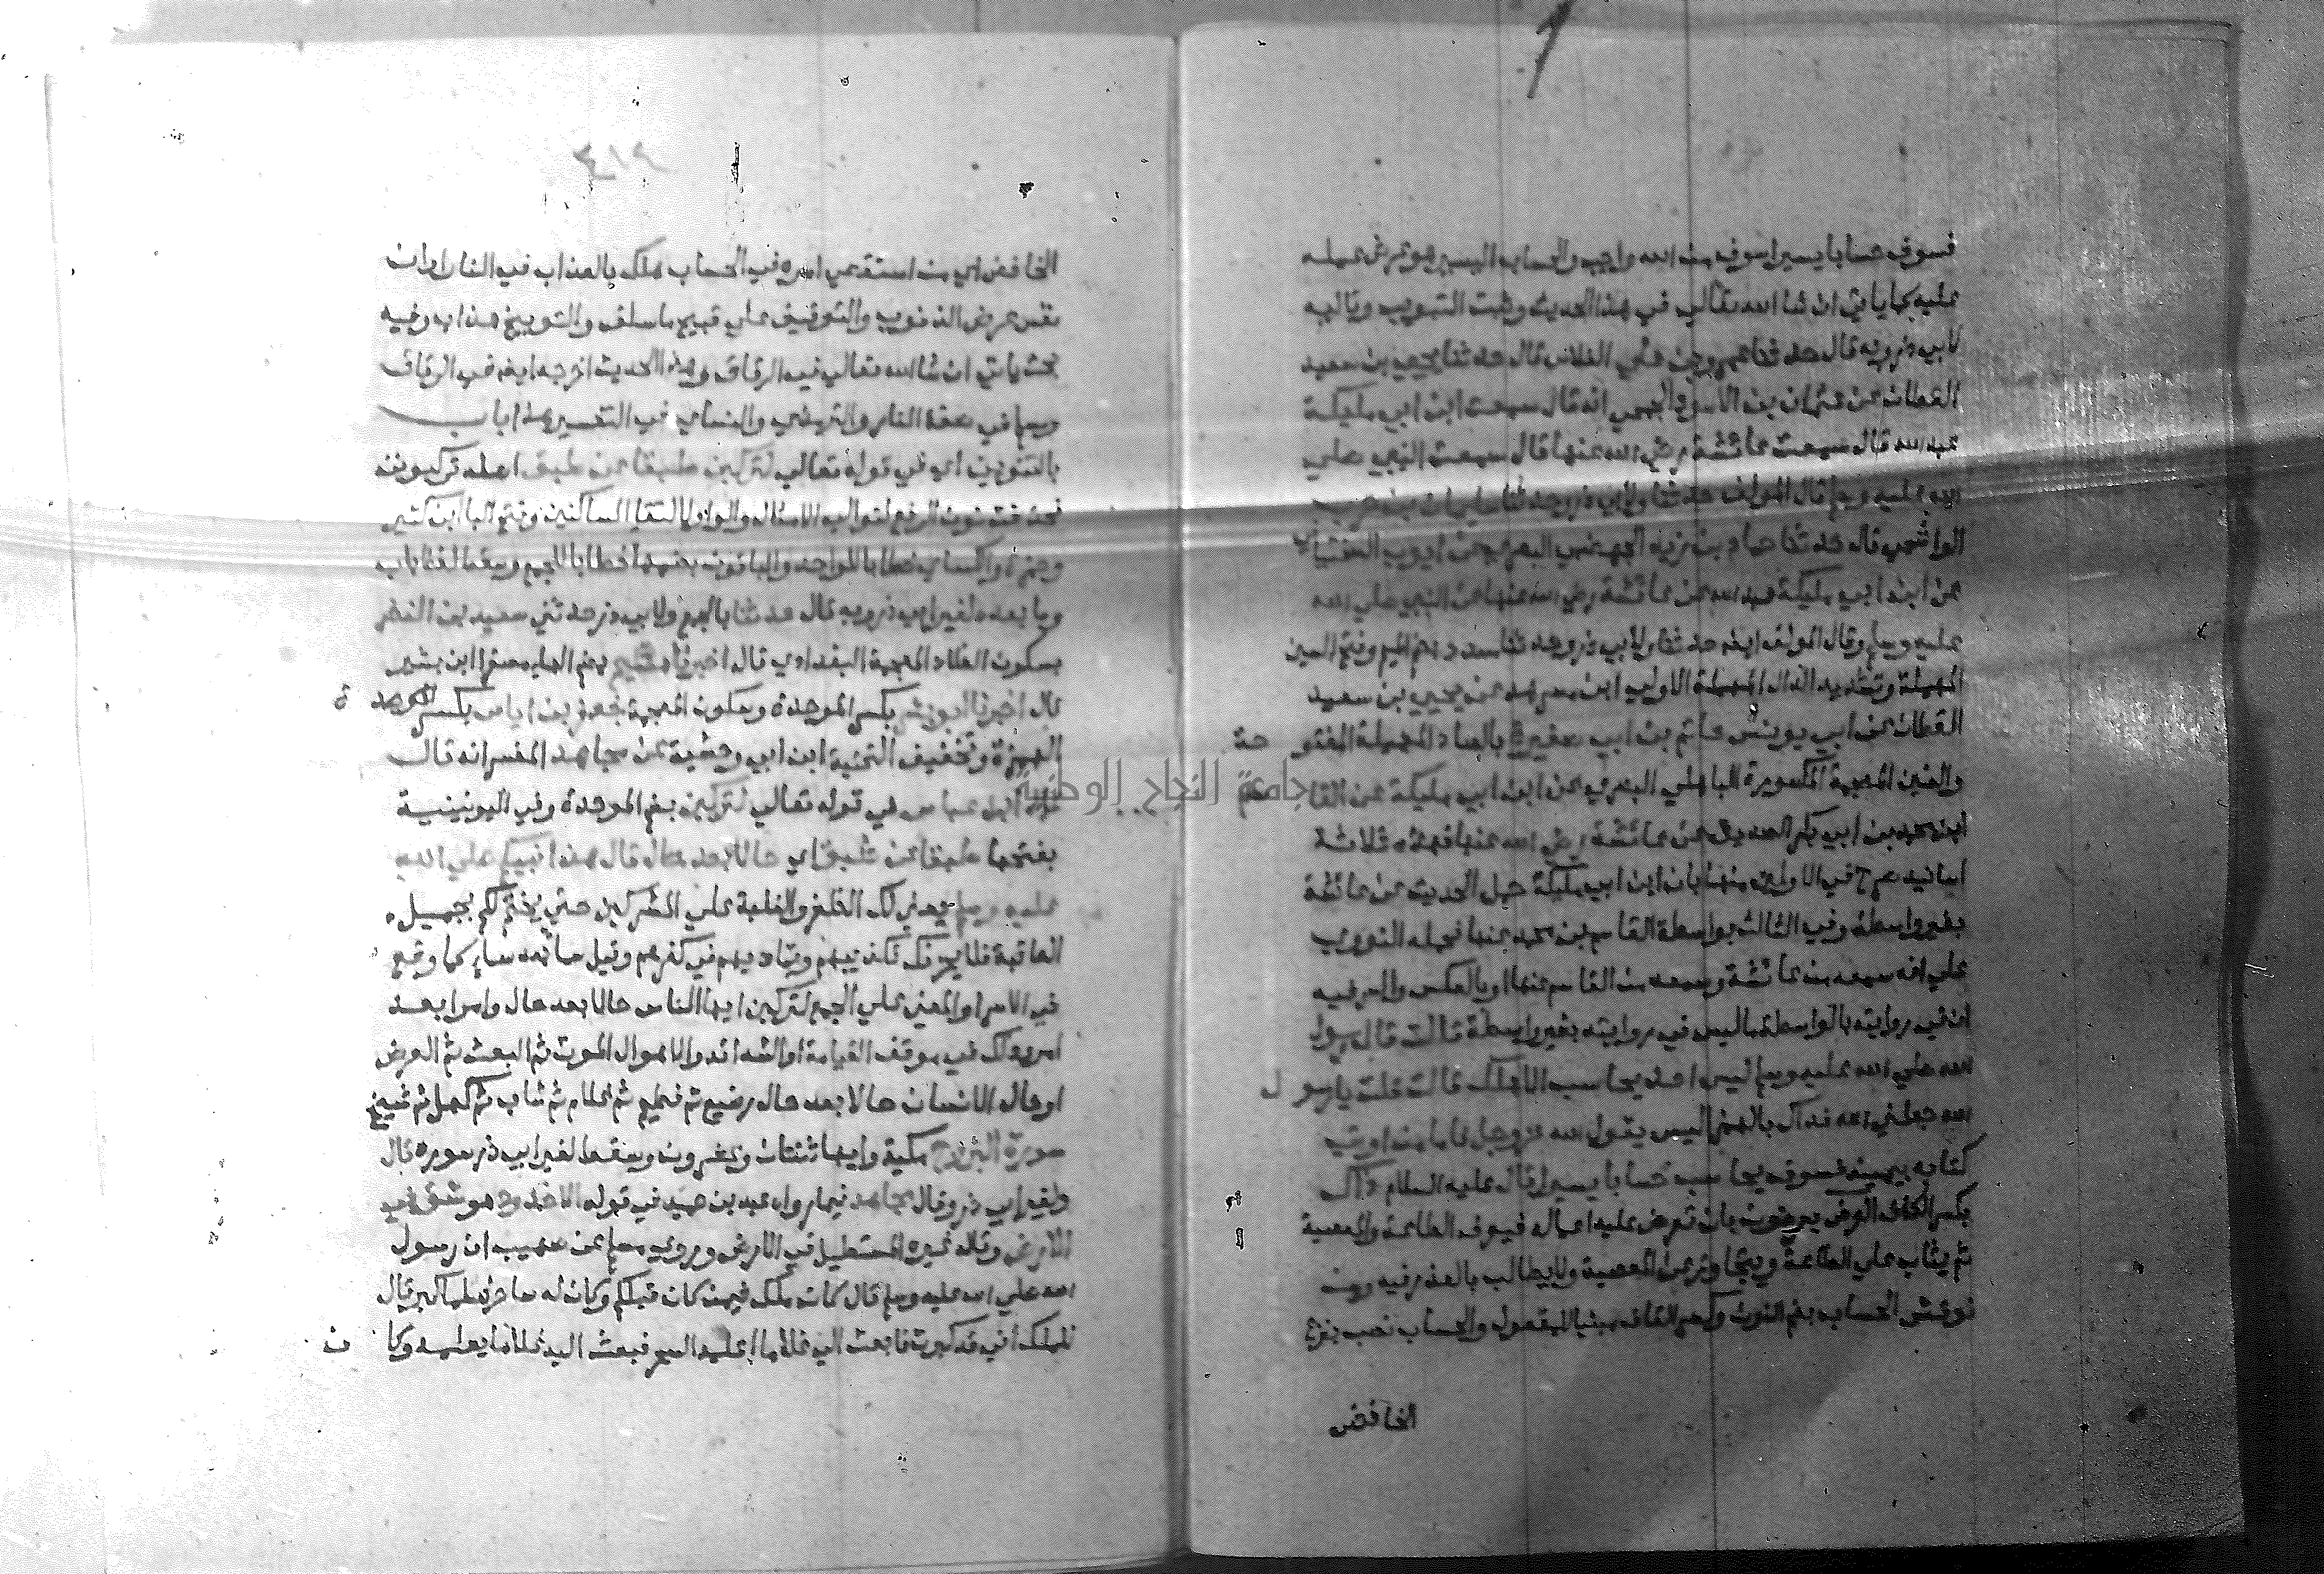 فسوف حسابا يسيرا سوف من الله واجب والحساب اليسير هو عرض عمله
عليه كما ياتي ان شا الله تعالي في هذا الحديث وثبت التبويب وتاليه
لابي ذر وبه قال حدثنا عمرو بن علي الفلاس قال حدثنا يحيي بن سعيد
القطان عن عثمان بن الاسود الجمحي انه قال سمعت ابن ابي مليكة
عبد الله قال سمعت عائشة رضي الله عنها قال سمعت النبي صلي
الله عليه وسلم قال المولف حدثنا ولابي ذر وحدثنا سليمان بن حرب
الواشحي قال حدثنا حماد بن زيد الجهضمي البصري عن ايوب السختياني
عن ابن ابي مليكة عبد الله عن عائشة رضي الله عنها عن النبي صلي الله
عليه وسلم وقال المولف ايضا حدثنا ولابي ذر وحدثنا مسدد بضم الميم وفتح السين
المهملة وتشديد الدال المهملة الاولي ابن مسرهد عن يحيي بن سعيد
القطان عن ابي يونس حاتم بن ابي صغيرة بالصاد المهملة المفتوحة
والغين المعجمة المكسورة الباهلي البصري عن ابن ابي مليكة عن القاسم
ابن محمد بن ابي بكر الصديق عن عائشة رضي الله عنها فهذه ثلاثة
اسانيد صرح في الاولين منها بان ابن ابي مليكة حمل الحديث عن عائشة
بغير واسطة وفي الثالث بواسطة القاسم بن محمد عنها فحمله النووي
علي انه سمعه من عائشة وسمعه من القاسم عنها او بالعكس والسر فيه
ان في روايته بالواسطة ما ليس في روايته بغير واسطة قالت قال رسول
الله صلي الله عليه وسلم ليس احد يحاسب الا هلك قالت قلت يا رسول
الله جعلني الله فداك بالهمز اليس يقول الله عز وجل فاما من اوتي
كتابه بيمينه فسوف يحاسب حسابا يسيرا قال عليه السلام ذاك
بكسر الكاف العرض يعرضون بان تعرض عليه اعماله فيعرف الطاعة والمعصية
ثم يثاب علي الطاعة ويتجاوز عن المعصية ولا يطالب بالعذر فيه ومن
نوقش الحساب بضم النون وكسر القاف مبنيا للمفعول والحساب نصب بنزع
الخافض
٤١٤
الخافض اي من استقصي امره في الحساب هلك بالعذاب في النار او ان
نفس عرض الذنوب والتوقيف علي قبيح ما سلف والتوبيخ عذاب وفيه
بحث ياتي ان شا الله تعالي في الرقاق وهذا الحديث اخرجه ايضا في الرقاق
ومسلم في صفة النار والترمذي والنساي في التفسير هذا باب
بالتنوين اي في قوله تعالي لتركبن طبقا عن طبق اصله تركبونن
فحذفت نون الرفع لتوالي الامثال والواو لالتقا الساكنين وفتح البا ابن كثير
وحمزة والكساي خطابا للواحد والباقون بضمها خطابا للجمع وسقط لفظ باب
وما بعده لغير ابي ذر وبه قال حدثنا بالجمع ولابي ذر حدثني سعيد بن النضر
بسكون الضاد المعجمة البغدادي قال اخبرنا هشيم بضم الها مصغرا ابن بشير
قال اخبرنا ابو بشر بكسر الموحدة وسكون المعجمة جعفر بن اياس بكسر
الهمزة وتخفيف التحتية ابن ابي وحشية عن مجاهد المفسر انه قال
قال ابن عباس في قوله تعالي لتركبن بضم الموحدة وفي اليونينية
بفتحها طبقا عن طبق اي حالا بعد حال قال هذا نبيكم صلي الله
عليه وسلم يعني لك الظفر والغلبة علي المشركين حتي يختم لك بجميل
العاقبة فلا يحزنك تكذيبهم وتماديهم في كفرهم وقيل سما بعد سما كما وقع
في الاسرا والمعني علي الجمع لتركبن ايها الناس حالا بعد حال وامرا بعد
امر وذلك في موقف القيامة او الشدائد والاهوال الموت ثم البعث ثم العرض
او حال الانسان حالا بعد حال رضيع ثم فطيم ثم غلام ثم شاب ثم كهل ثم شيخ
سورة البروج مكية وايها ثنتان وعشرون وسقط لغير ابي ذر سورة قال
ولغير ابي ذر وقال مجاهد فيما رواه عبد بن حميد في قوله الاخدود هو شق في
الارض وقال غيره المستطيل في الارض وروي مسلم عن صهيب ان رسول
الله صلي الله عليه وسلم قال كان ملك فيمن كان قبلكم وكان له ساحر فلما كبر قال
للملك اني قد كبرت فابعث الي غلاما اعلمه السحر فبعث اليه غلاما يعلمه وكان
جامعة النجاح الوطنية